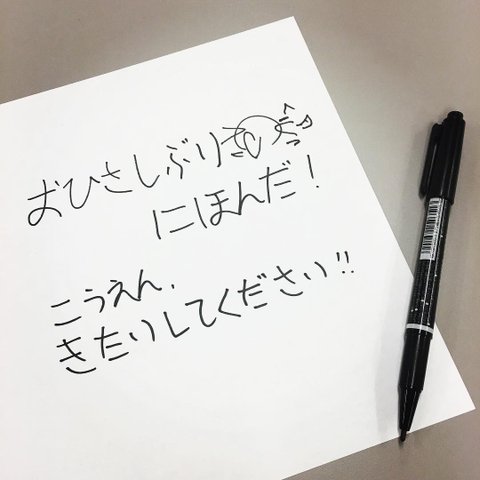 おひさしぶり
にほんだ！
こうえん、
きたいしてください!!